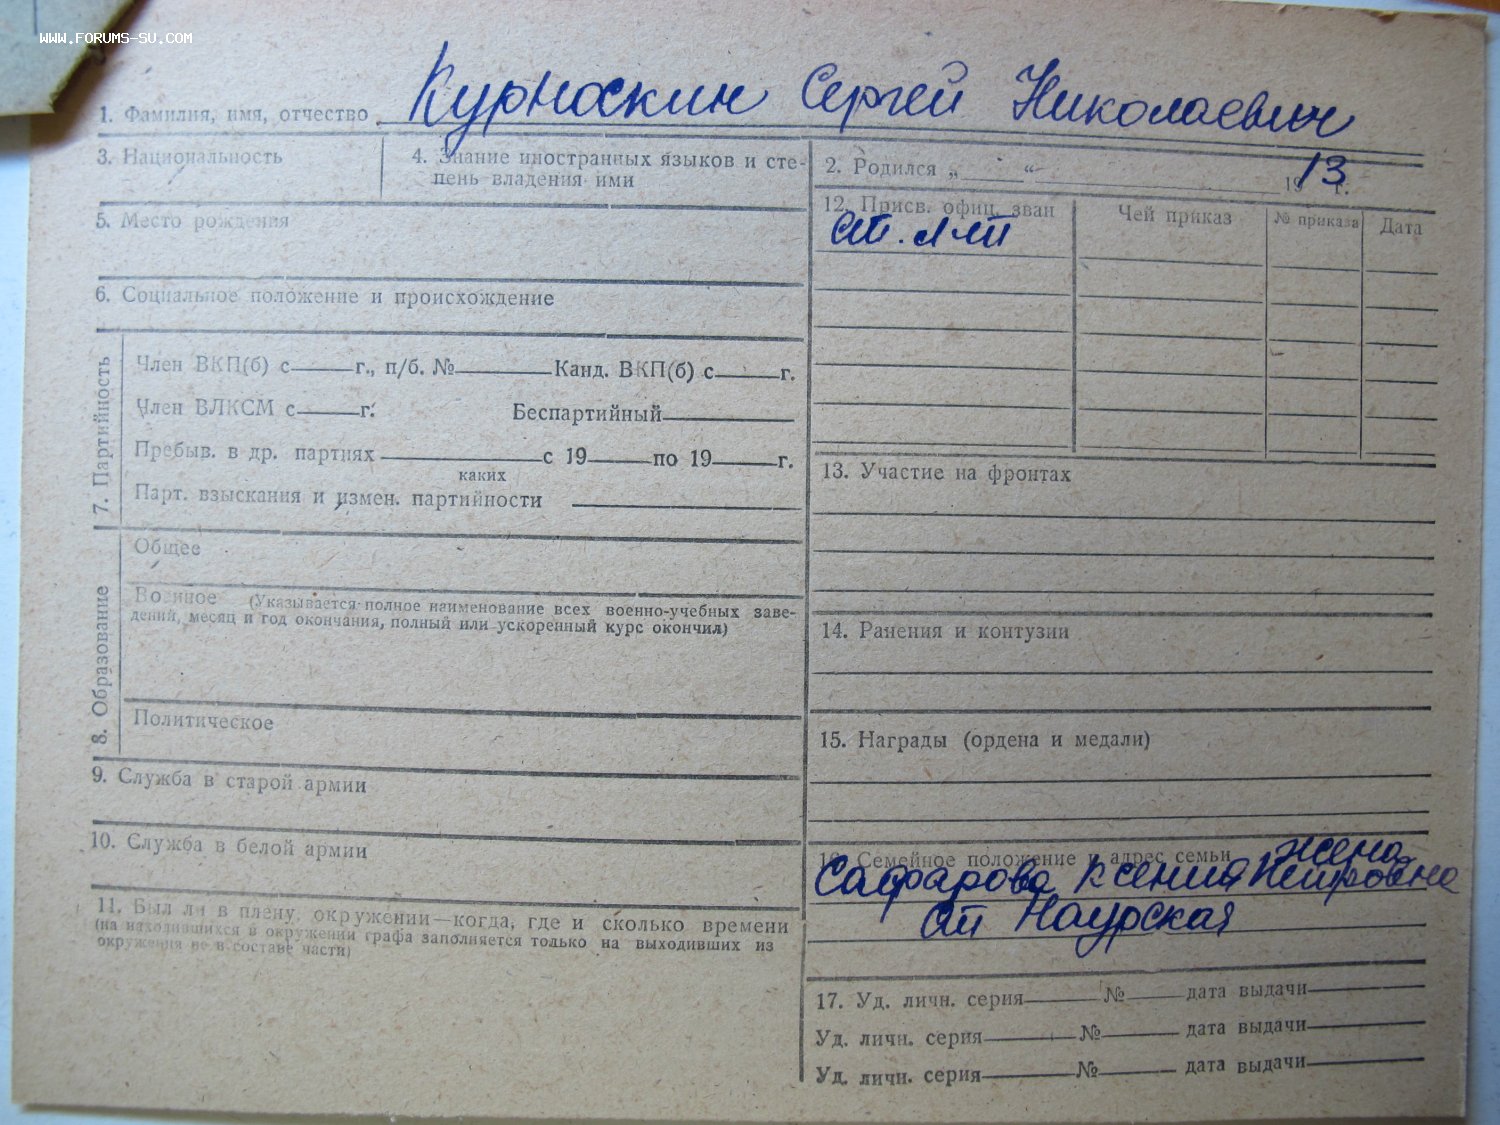 WWW.FORUMS-SU.COM
1. Фамилия, имя, отчество Курноскин Сергей Николаевич
3. Национальность
4. Знание иностранных языков и сте-
пень владения ими
5. Место рождения
6. Социальное положение и происхождение
7. Партийность
Член ВКП(б) с г., п/б. № Канд. ВКП(б) с г.
Член ВЛКСМ с г. Беспартийный
Пребыв. в др. партиях с 19 по 19 г.
каких
Парт. взыскания и измен. партийности
8. Образование
Общее
Военное (Указывается полное наименование всех военно-учебных заве-
дений, месяц и год окончания, полный или ускоренный курс окончил)
Политическое
9. Служба в старой армии
10. Служба в белой армии
11. Был ли в плену, окружении—когда, где и сколько времени
(на находившихся в окружении графа заполняется только на выходивших из
окружения не в составе части)
2. Родился „ “ 1913 г.
12. Присв. офиц. зван Чей приказ № приказа Дата
ст. л-т
13. Участие на фронтах
14. Ранения и контузии
15. Награды (ордена и медали)
16. Семейное положение и адрес семьи жена
Сафарова Ксения Петровна
ст Наурская
17. Уд. личн. серия № дата выдачи
Уд. личн. серия № дата выдачи
Уд. личн. серия № дата выдачи